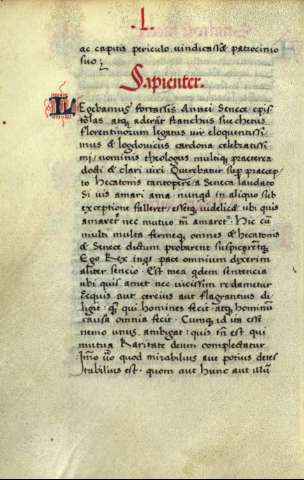 .L.
ac capitis periculo vindicasse patrocinio
suo;
Sapienter.
LEgebamus fortassis Annei Senece epis
tolas atq, aderat franchus sacchetus
florentinorum legatus vir eloquentissi
mus & logdovicus cardona celebratissi
mi nominis theologus multiq, praeterea
docti & clari viri Querebatur sup praecep
to Hecatonis tantopere a Seneca laudato
Si vis amari ama nunqd in aliquo sub
exceptione falleret: essetq, videlicet ubi quis
amaret nec mutuo tn amaret: Hic cum
multi multa ferme omnes & hecatonis
& Senece dictum probarent suspicerentq,
Ego Rex inqt pace omnium dixerim
aliter sencio Est mea qdem sentencia
ubi quis amet nec vicissim redametur
Ecquis aut cercius aut flagrantius di
ligit qui homines fecit atq, hominum
causa omnia fecit. Cumq, id ita esse
nemo unus ambigat: quis tn est qui
mutua Karitate deum complectatur
Imo vo quod mirabilius aut potius detes
tabilius est. quom aut hunc aut illu